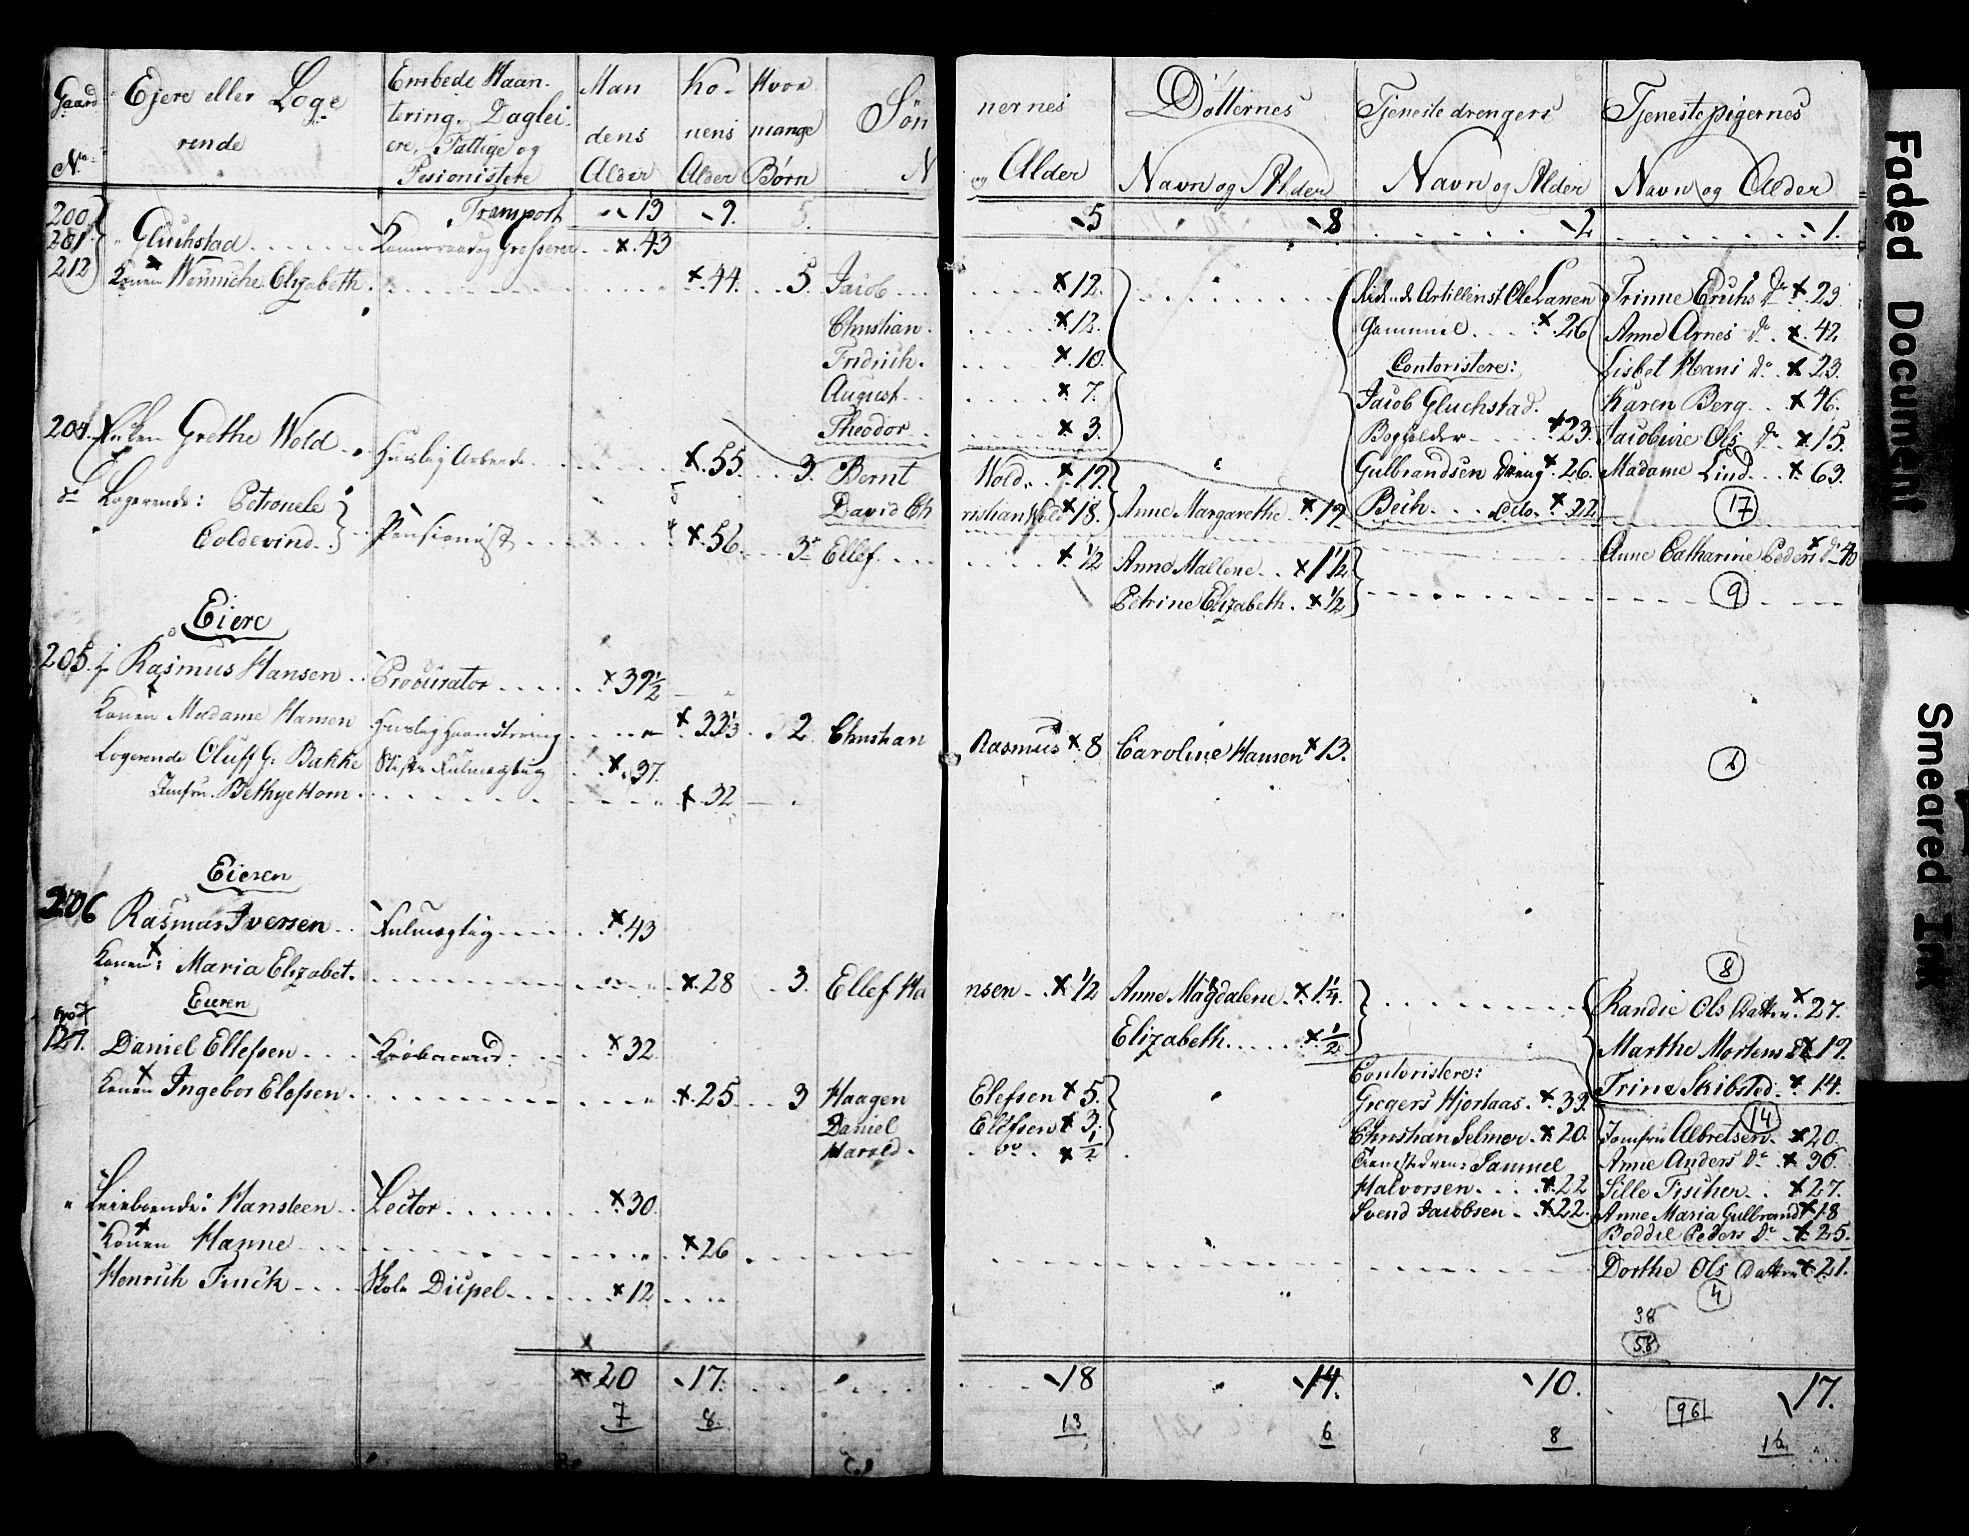 Gaard No. | Ejere eller Logerende | Embede Haantering, Dagleiere, Fattige og Pesionistere | Mandens Alder | Konens Alder | Hvor mange Børn | Sønnernes Navn og Alder | Dötternes Navn og Alder | Tjenestedrengers Navn og Alder | Tjenestepigernes Navn og Alder
Transport 13 9. 5. 5 8 2 1.
200
201 Gluckstad Kammerraad og Grosserer x 43
212 Konen Wennicke Elizabeth x 44. 5. Jacob x 12. Ole Lanen Trinne Erichs Dr x 23.
Christian x 12. Gammel x 26 Anne Arnes Dr x 42
Fridrich x 10. Contoristere: Lisbet Hans Dr x 23.
August x 7. Jacob Gluckstad. Karen Berg x 46.
Theodor x 3. Bogholder x 23. Jacobine Ols Dr x 15.
204. Enken Grethe Wold Huuslig Arbeide x 55 3. Bernt Wold x 19. Gulbrandsen Dreng x 26. Madame Lind x 63.
David Christian Wold x 18. Anne Margarethe x 19 Beck dito x 22 17
do Logerende: Petronele
Coldevind Pensionist x 56 3 Ellef x 1/2 Anne Mallene x 1 1/2 Anne Catharine Peders Dr 40
Petrine Elizabeth x 1/2 9
Eiere
205. Rasmus Hansen Procurator x 39 1/2
Konen Madame Hansen Huuslig Haandtering x 33 1/3 2 Christian Rasmus x 8 Caroline Hansen x 13.
Logerende Oluff G: Bakke Stifts Fulmægtig x 37.
Jomfru Bethye Horn x 32
Eieren
206 Rasmus Iversen Fulmægtig x 43
Konen: Maria Elizabet x 28 3. Ellef Hansen x 1/2 Anne Magdalene x 1 1/4. 8 Randie Ols Datter x 27.
Eieren
127. Daniel Ellefsen x 32 Elizabeth x 1/2 Marthe Mortens x 19.
Contoristere: Trine Skibsted x 14.
Konen Ingebor Elefsen x 25 3 Haagen Elefsen x 5. Gregers Hjortaas x 33. 14
Daniel Elefsen x 3. Christian Selmer x 20. Jomfru Albretsen x 20.
Harald do x 1/2 Tienestedreng Samuel Anne Anders Dr x 36.
Halvorsen x 22 Sille Fischer x 27.
Leieboende: Hansteen Lector x 30. Svend Jacobsen x 22. Anne Maria Gulbrand x 18
Konen Hanne x 26 Boddil Peders Dr x 25.
Henrich Finck Skole Dicipel x 12 Dorthe Ols Datter x 21.
4
38
58
20 17. 18 14. 10. 17.
7 8. 13 6 8 96 16
Faded Document
Smeared Ink